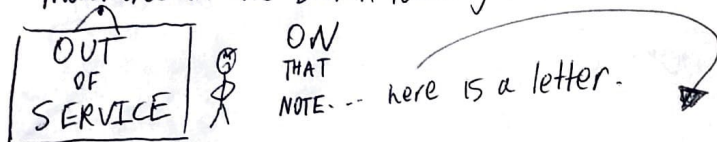 OUT
OF
SERVICE
ON
THAT
NOTE... here is a letter.